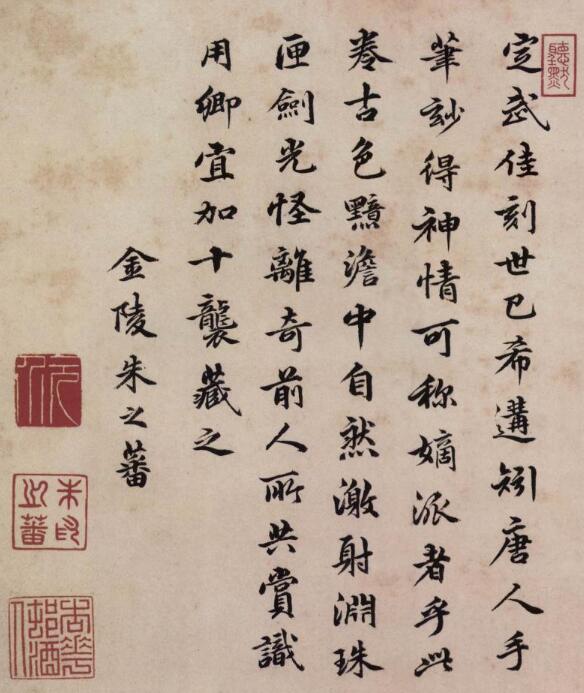 定武佳刻世已希遘矧唐人手
筆玅得神情可称嫡派者乎此
卷古色黯澹中自然激射淵珠
匣劍光怪離奇前人所共賞識
用卿宜加十襲藏之
金陵朱之蕃
朱氏之蕃